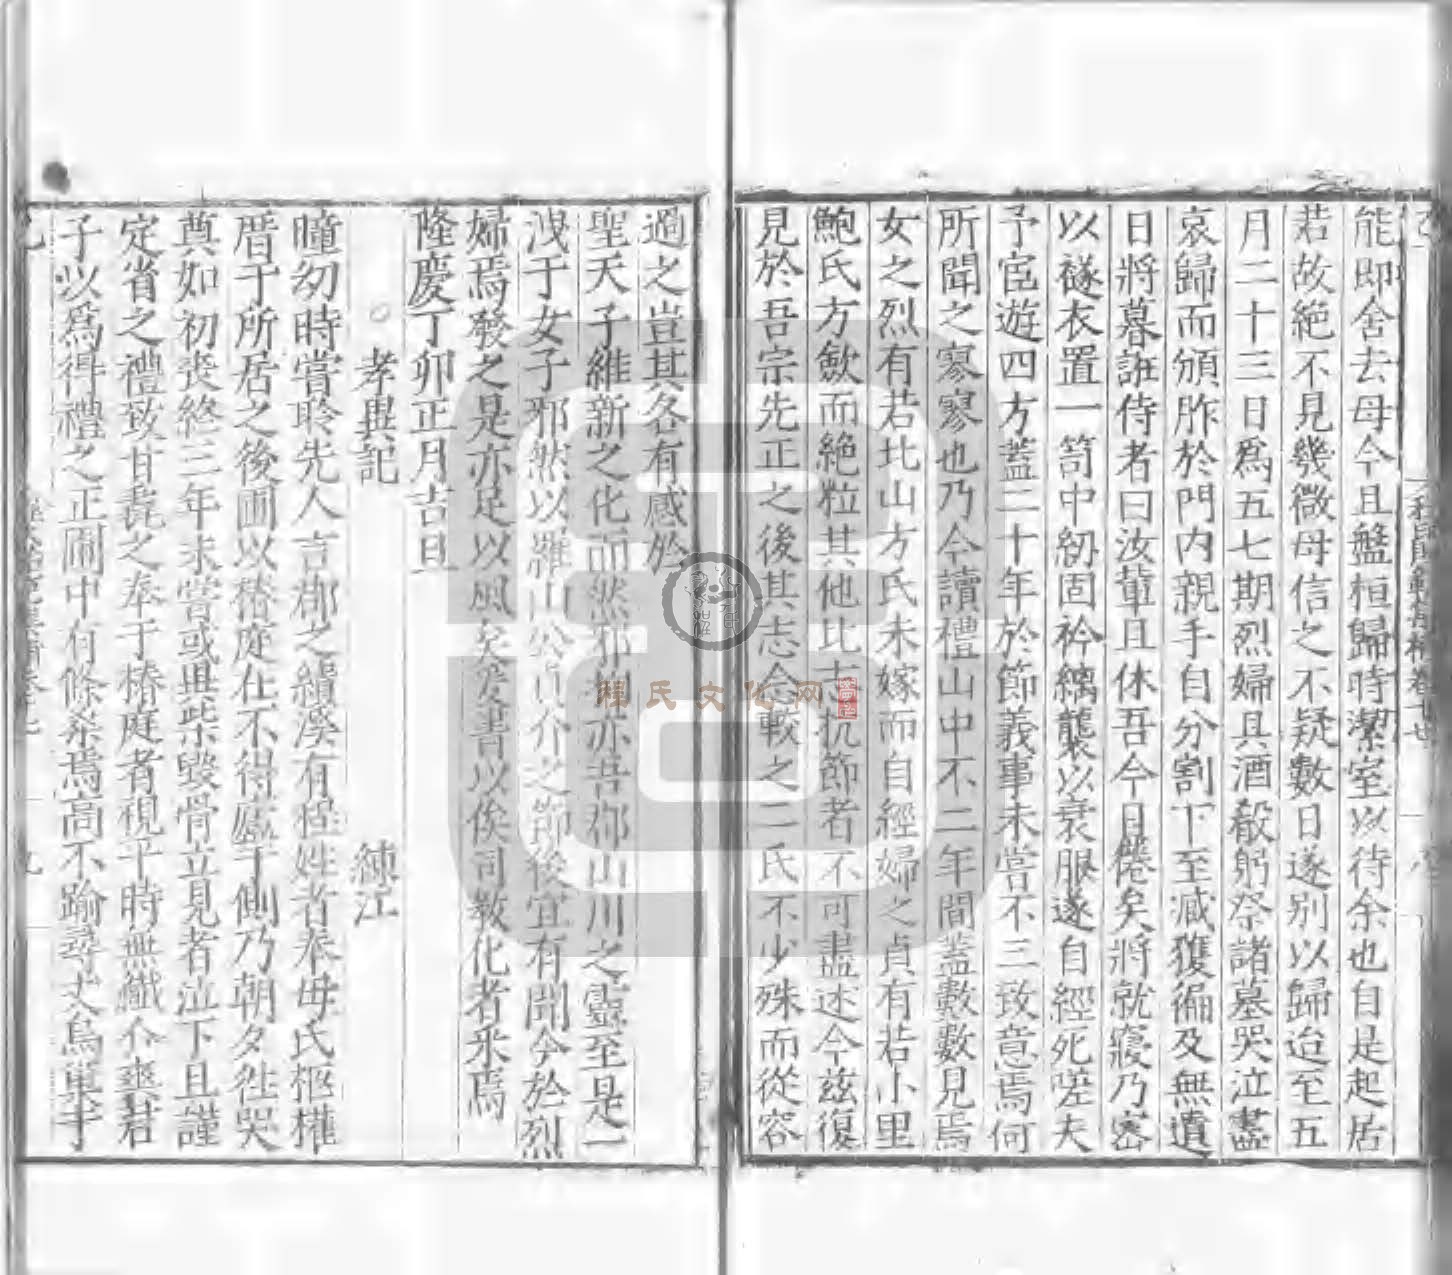 能即舍去母今且盤桓歸時潔室以待余也自是起居
若故絶不見幾微母信之不疑數日遂别以歸迨至五
月二十三日爲五七期烈婦具酒殽躬祭諸墓哭泣盡
哀歸而頒胙於門内親手自分割下至減獲徧及無遺
日將暮誑侍者曰汝輩且休吾今日倦矣將就寢乃密
以襚衣置一笥中紉固衿縭襲以衰服遂自經死嗟夫
予宦遊四方蓋二十年於節義事未嘗不三致意焉何
所聞之寥寥也乃今讀禮山中不二年間蓋數數見焉
女之烈有若北山方氏未嫁而自經婦之貞有若小里
鮑氏方歛而絶粒其他比士抗節者不可盡述今兹復
見於吾宗先正之後其志念較之二氏不少殊而從容
過之豈其各有感於
聖天子維新之化而然邪抑亦吾郡山川之靈至是一
洩于女子邪然以羅山公貞介之節後宜有聞今於烈
婦焉發之是亦足以風矣爰書以俟司敎化者采焉
隆慶丁卯正月吉旦
孝異記 練江
曈㓜時嘗聆先人言郡之績溪有程姓者奉母氏柩權
厝于所居之後圃以椿庭在不得廬于側乃朝夕往哭
奠如初喪終三年未嘗或輟柴毀骨立見者泣下且謹
定省之禮致甘毳之奉于椿庭者視平時無纖介爽君
子以爲得禮之正圃中有條桑焉高不踰尋丈烏巢于
程氏文化网